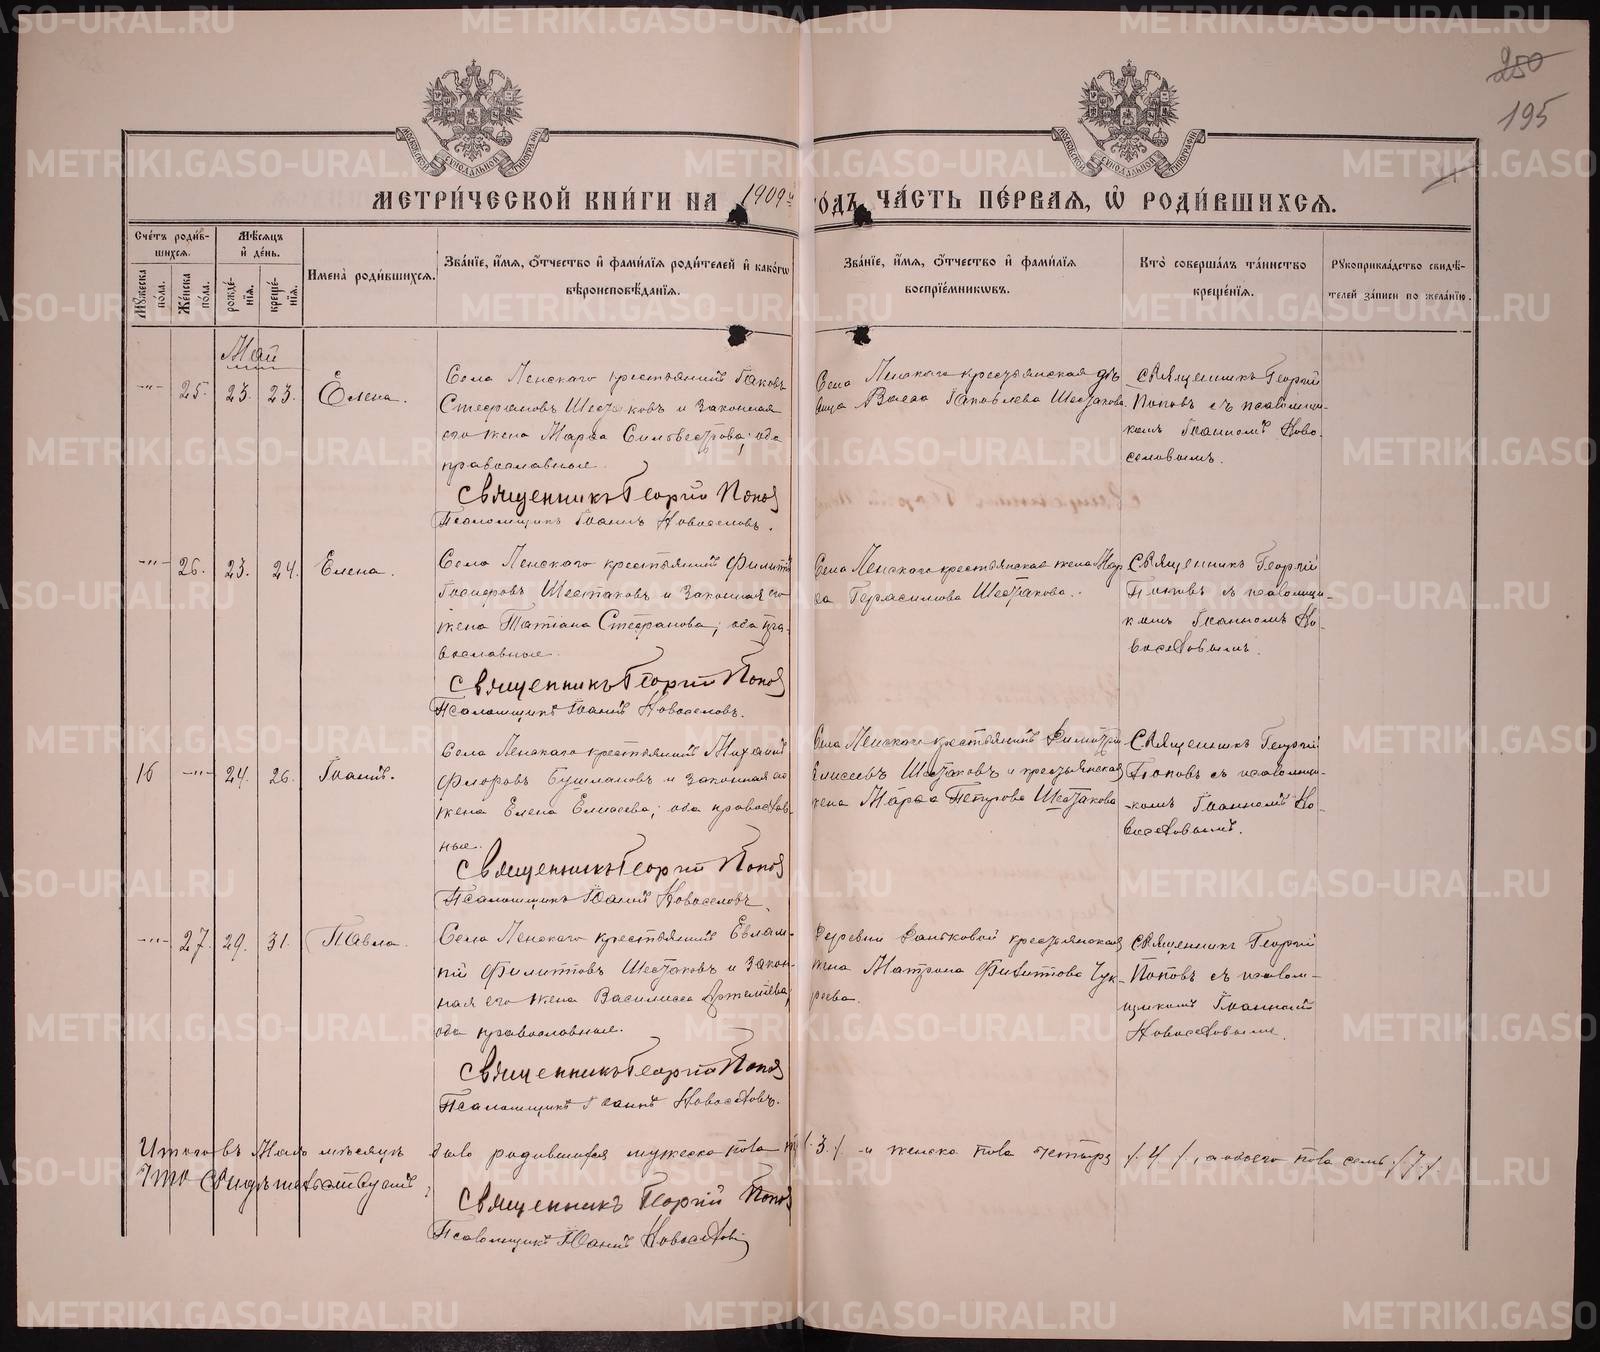 250
195
МЕТРИ́ЧЕСКОЙ КНИ́ГИ НА 1909й ГО́ДЪ, ЧА́СТЬ ПЕ́РВАЯ, Ѡ҆ РОДИ́ВШИХСЯ.
Сче́тъ роди́в-
шихся.
Мѣ́сяцъ
и҆ де́нь.
Мꙋжеска по́ла.
Же́нска по́ла.
рожде́-
нія.
креще́-
нія.
Имена̀ роди́вшихся.
Зва́ніе, и҆́мя, ѻ҆́тчество и҆ фами́лія роди́телей и҆ како́гѡ
вѣроисповѣ́данія.
Зва́ніе, и҆́мя, ѻ҆́тчество и҆ фами́лія
воспріе́мникѡвъ.
Кто̀ соверша́лъ та́инство
креще́нія.
Рꙋкоприкла́дство свидѣ́-
телей за́писи по жела́нію.
Май
-"- 25. 23. 23. Елена.
Села Ленскаго крестьянинъ Іаковъ
Стефановъ Шестаковъ и законная
его жена Марѳа Силовестрова; оба
православные.
Священникъ Георгій Попов
Псаломщикъ Іоаннъ Новоселовъ.
Села Ленскаго крестьянская дѣ-
вица Васса Іаковлева Шестакова.
Священникъ Георгій
Поповъ съ псаломщи-
комъ Іоанномъ Ново-
селовымъ.
-"- 26. 23. 24. Елена.
Села Ленскаго крестьянинъ Филиппъ
Шестаковъ и законная его
жена Татіана Стефанова; оба пра-
вославные.
Священникъ Георгій Попов
Псаломщикъ Іоаннъ Новоселовъ.
Села Ленскаго крестьянская жена Мар-
ѳа Герасимова Шестакова.
Священникъ Георгій
Поповъ съ псаломщи-
комъ Іоанномъ Но-
воселовымъ.
16 -"- 24. 26. Іоаннъ.
Села Ленскаго крестьянинъ Михаилъ
Флоровъ Бушлановъ и законная его
жена Елена Елисеева; оба православ-
ные.
Священникъ Георгій Попов
Псаломщикъ Іоаннъ Новоселовъ.
Села Ленскаго крестьянинъ Димитрій
Елисеевъ Шестаковъ и крестьянская
жена Марѳа Петрова Шестакова
Священникъ Георгій
Поповъ съ псаломщи-
комъ Іоанномъ Но-
воселовымъ.
-"- 27. 29. 31. Павла.
Села Ленскаго крестьянинъ Евлам-
пій Филипповъ Шестаковъ и закон-
ная его жена Василисса Артемиева;
оба православные.
Священникъ Георгій Попов
Псаломщикъ Іоаннъ Новоселовъ.
Деревни крестьянская
жена Матрона Филиппова Чук-
реева.
Священникъ Георгій
Поповъ съ псалом-
щикомъ Іоанномъ
Новоселовымъ.
Итого въ Маѣ мѣсяцѣ было родившихся мужеска пола три /3/ и женска пола четыре /4/, а обоего пола семь /7/.
Что свидѣтельствуемъ:
Священникъ Георгій Попов
Псаломщикъ Іоаннъ Новоселовъ